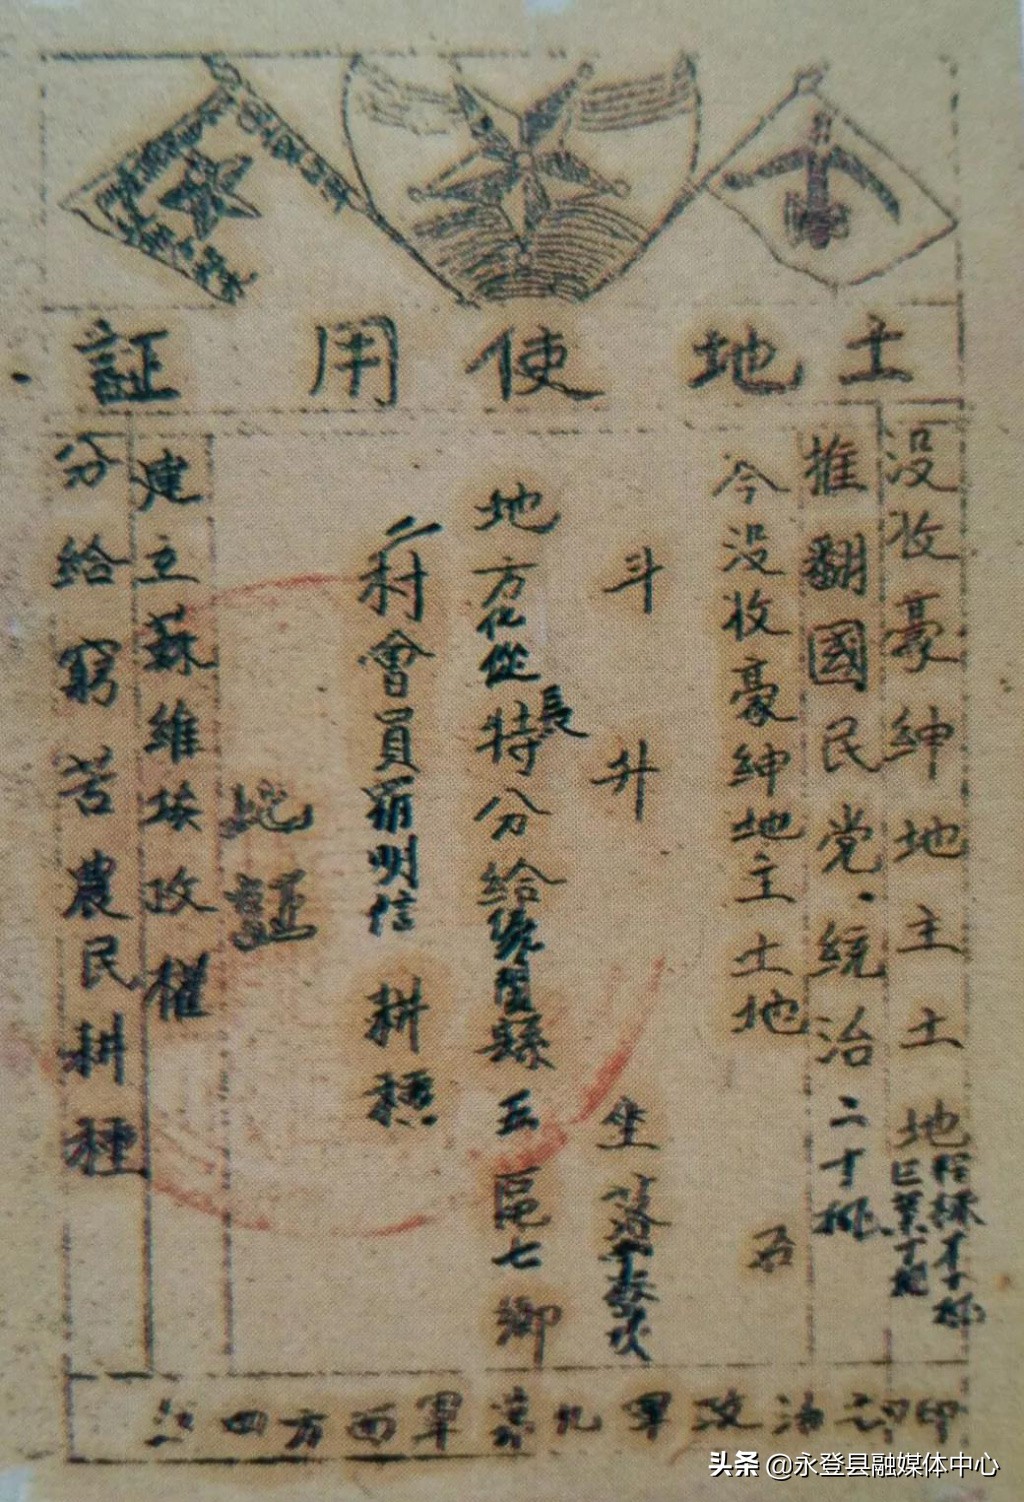 土地使用証
没收豪紳地主土地
推翻國民党統治
二十
今没收豪紳地主土地
五
斗 升 坐落
地方化從長特分給
縣五區七鄉
村會員羅明信耕種
此証
建立蘇維埃政權
分給窮苦農民耕種
印部治政軍九第軍面方四紅
头条 @永登县融媒体中心